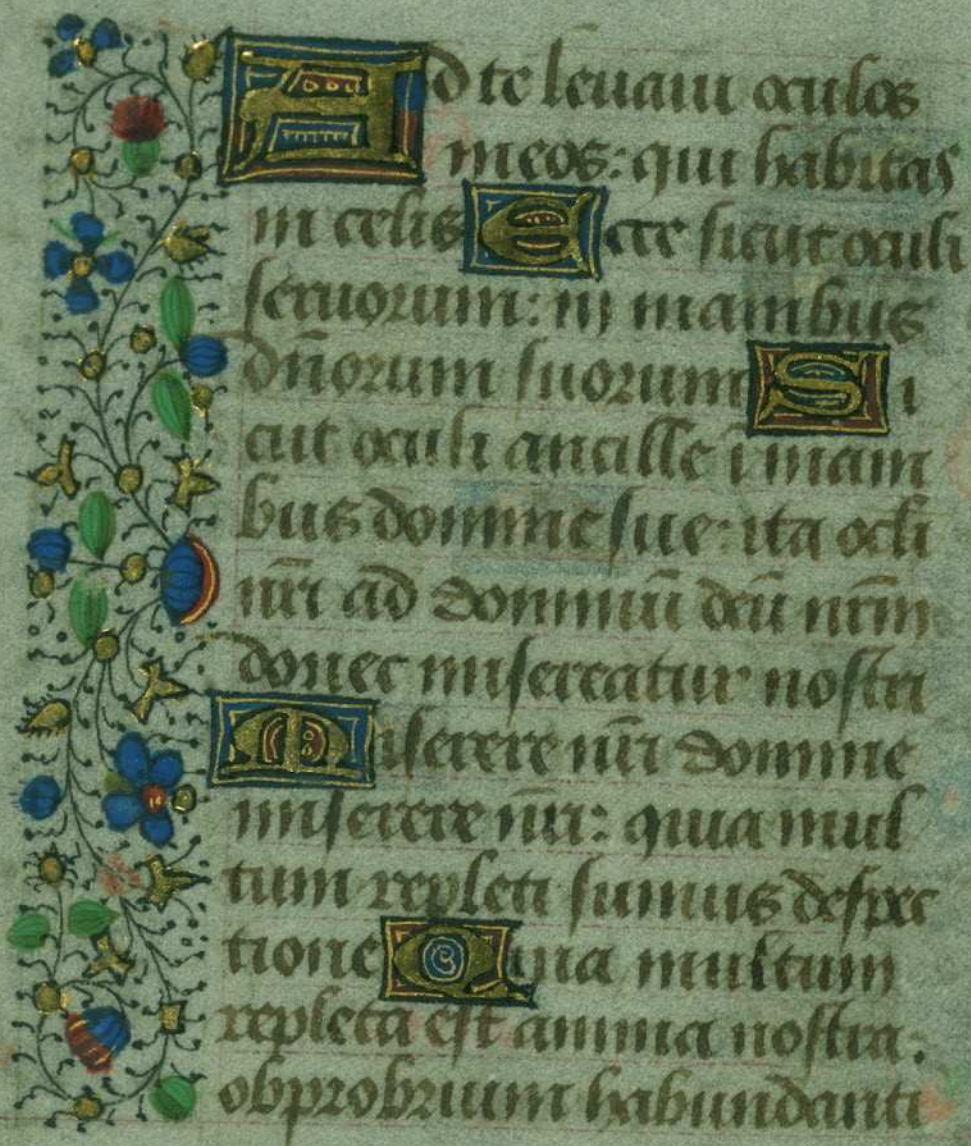 Ad te leuaui oculos
meos: qui habitas
in celis Ecce sicut oculi
seruorum: in manibus
dñorum suorum Si
cut oculi ancille ī mani
bus domine sue: ita ocľi
nr̃i ad dominū deū nr̃m
donec misereatur nostri
Miserere nr̃i domine
miserere nr̃i: quia mul
tum repleti sumus despec
tione Quia multum
repleta est anima nostra.
obprobrium habundanti